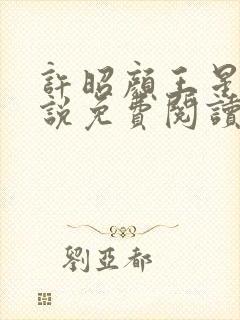 許昭顏王是
說免費閱讀
劉亞都